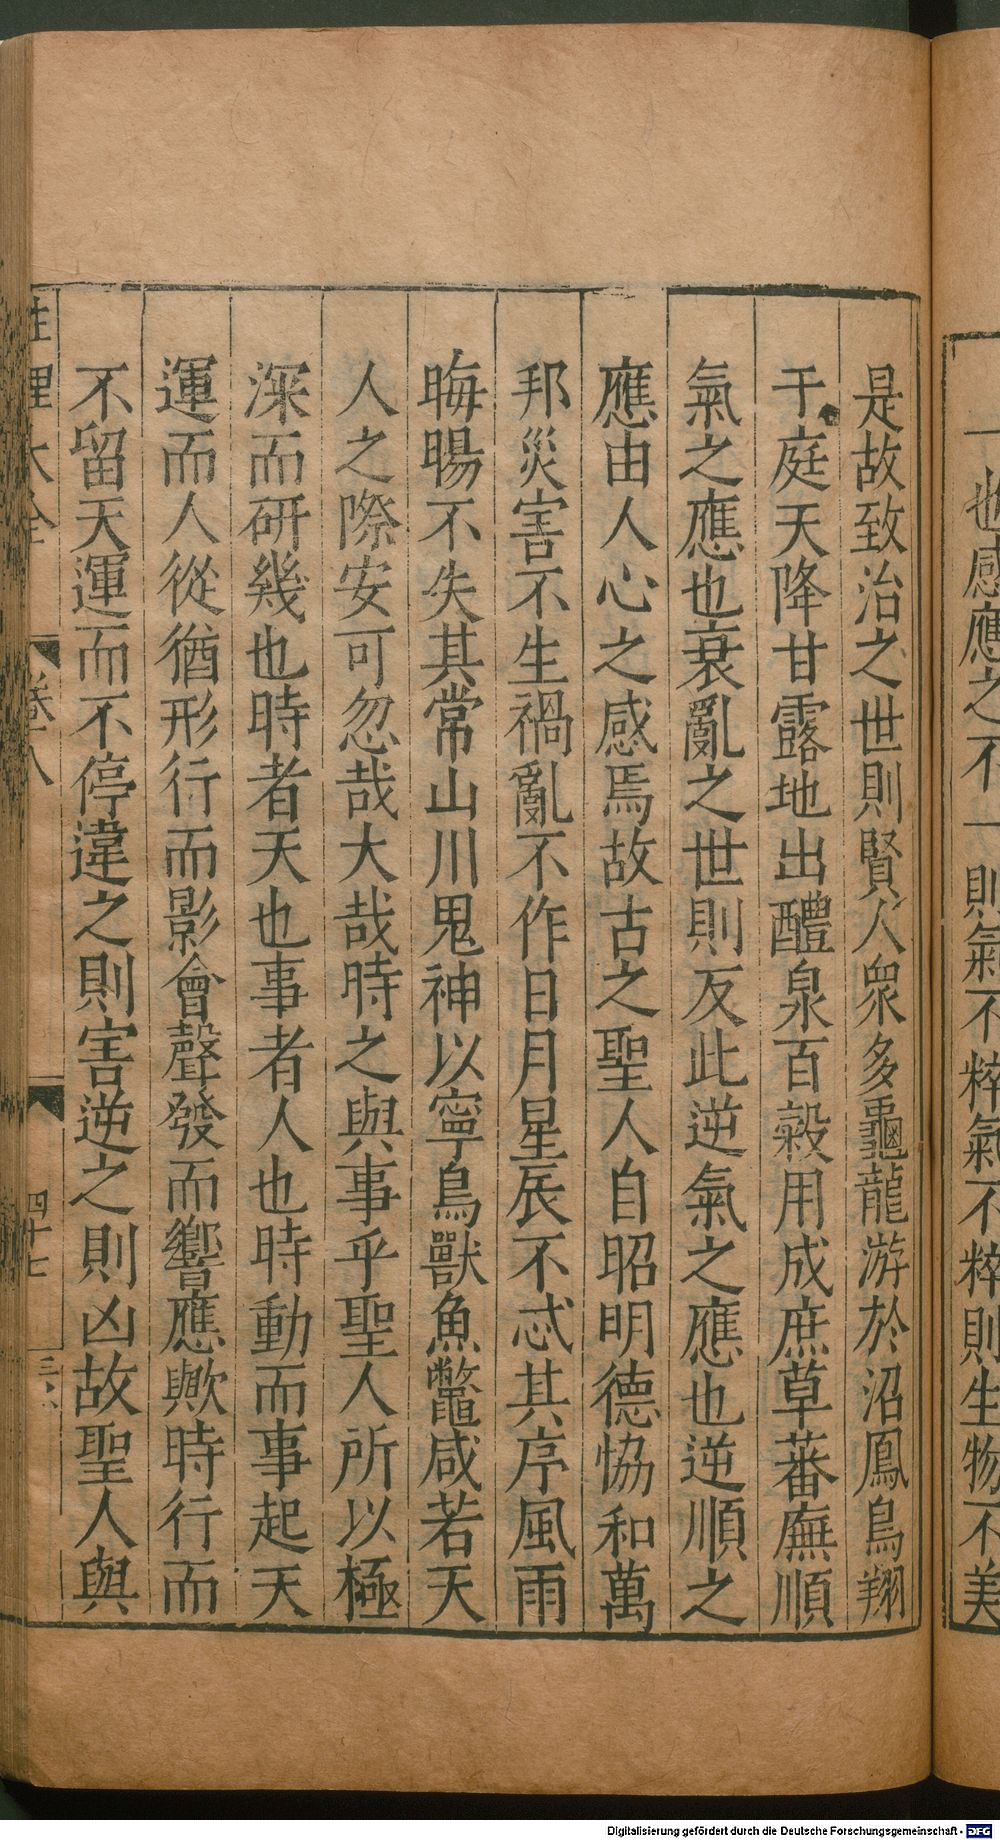 一也感應之不一則氣不粹氣不粹則生物不美
是故致治之世則賢人眾多龜龍游於沼鳳鳥翔
于庭天降甘露地出醴泉百穀用成庶草蕃廡順
氣之應也衰亂之世則反此逆氣之應也逆順之
應由人心之感焉故古之聖人自昭明德恊和萬
邦災害不生禍亂不作日月星辰不忒其序風雨
晦暘不失其常山川鬼神以寧鳥獸魚鼈咸若天
人之際安可忽哉大哉時之與事乎聖人所以極
深而研幾也時者天也事者人也時動而事起天
運而人從猶形行而影會聲發而響應歟時行而
不留天運而不停違之則害逆之則凶故聖人與
性理大全 卷八 四十七
Digitalisierung gefördert durch die Deutsche Forschungsgemeinschaft - DFG